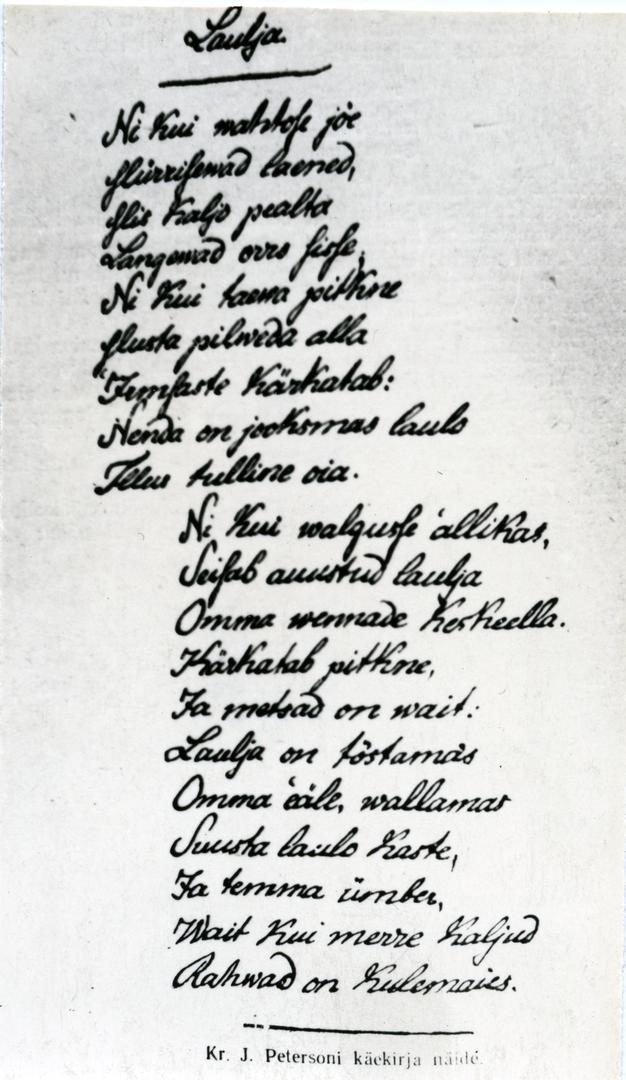 Laulja.
Ni kui wahtose jöe
Sürrisewad laened,
Siis kaljo pealta
Langewad orro sisse;
Ni kui taewa pitkne
Musta pilweda alla
Jemsaste kärkatab:
Nenda on jooksmas laulo
Illus tulline oia.
Ni kui walgusse ʻallikas,
Seisab auustud laulja
Omma wennade keskeella.
Kärkatab pitkne,
Ja metsad on wait:
Laulja on töstamas
Omma ʻeäle, wallamas
Suusta laulo kaste,
Ja temma ümber,
Wait kui merre kaljud
Rahwad on kulemaies.
Kr. J. Petersoni käekirja näide.